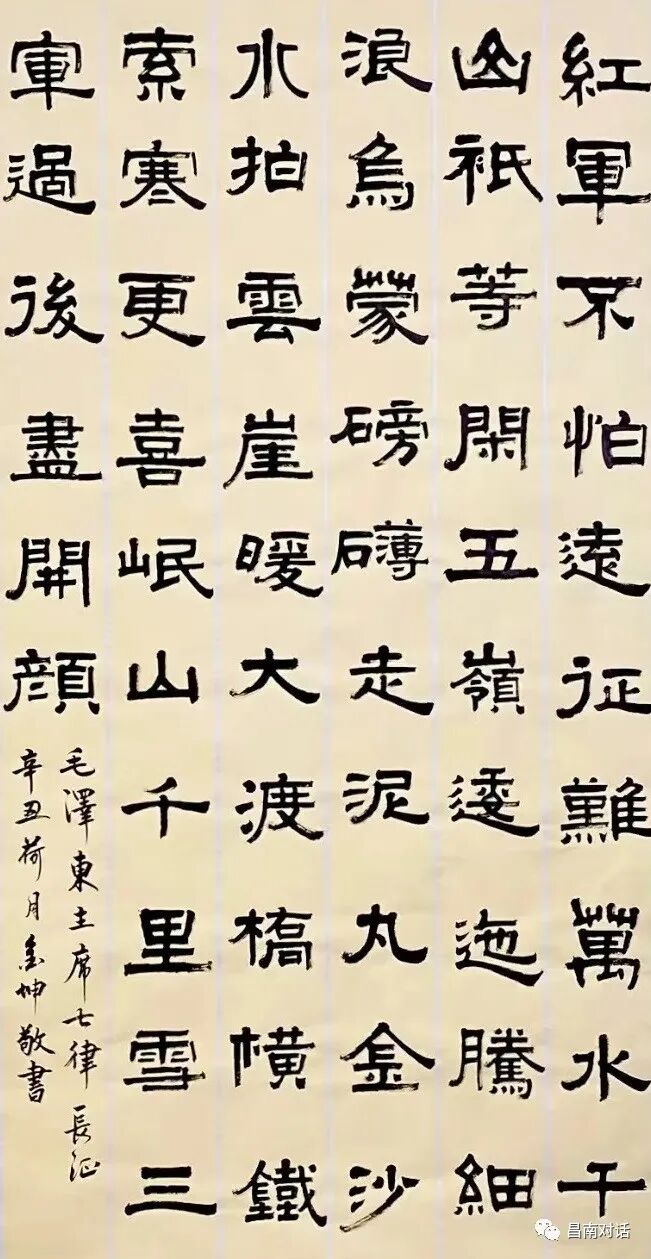 紅軍不怕遠征難萬水千
山祇等閑五嶺逶迤騰細
浪烏蒙磅礴走泥丸金沙
水拍雲崖暖大渡橋横鐵
索寒更喜岷山千里雪三
軍過後盡開顔
毛澤東主席七律 長征
辛丑荷月金坤敬書
昌南对话